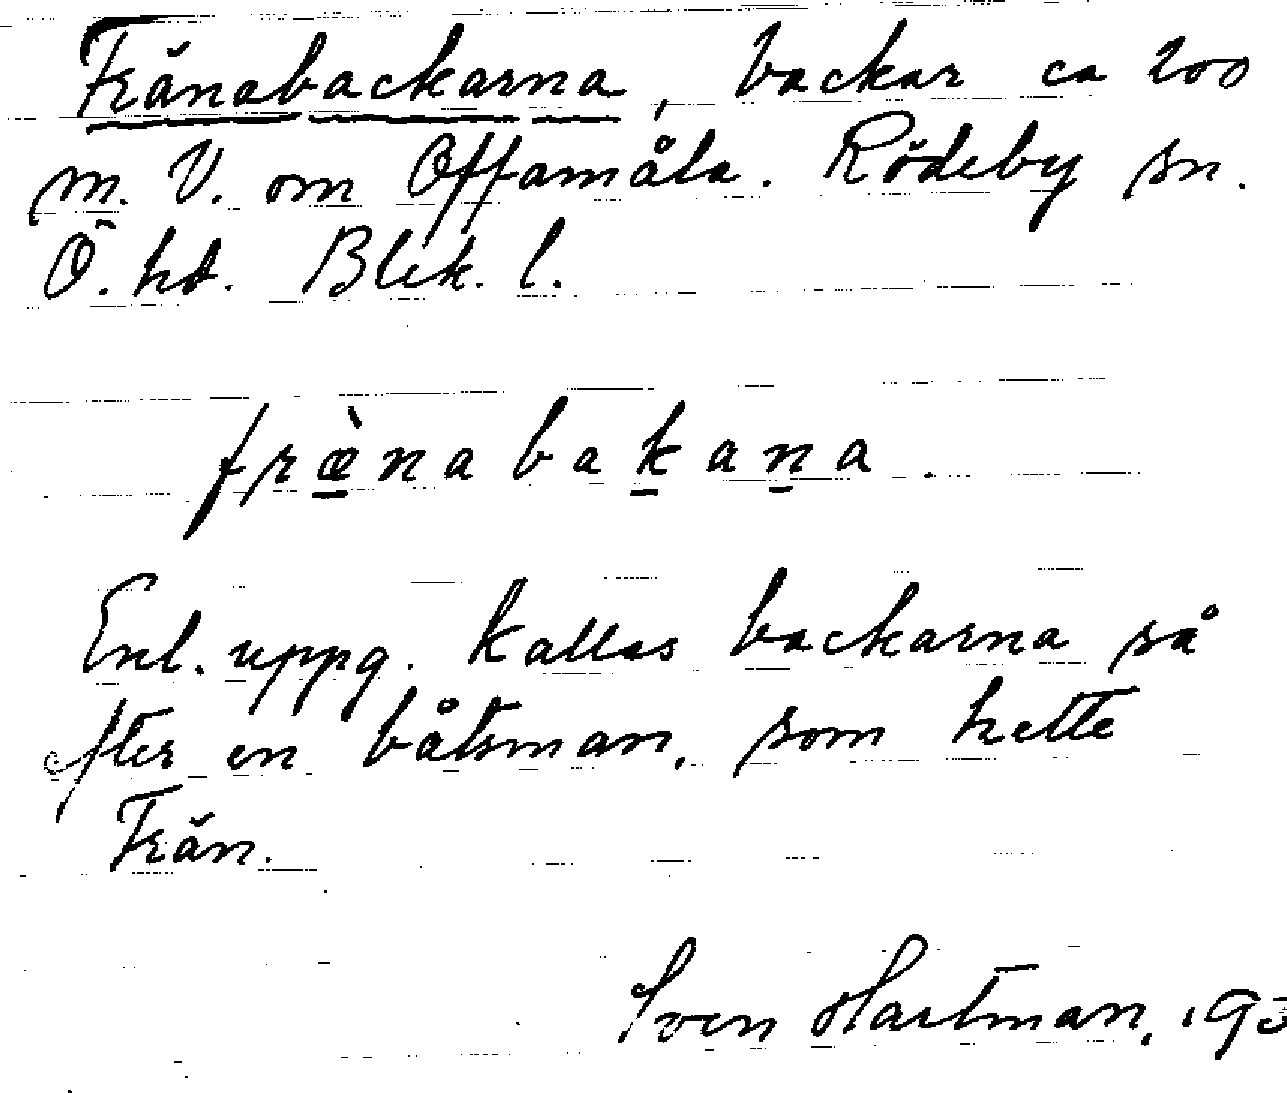 Fränabackarna, backar ca 200
m. V. om Offamåla. Rödeby sn.
Ö. hd. Blek. l.
fræ̀nabakana.
Enl. uppg. kallas backarna så
efter en båtsman, som hette
Frän.
Sven Hartman,